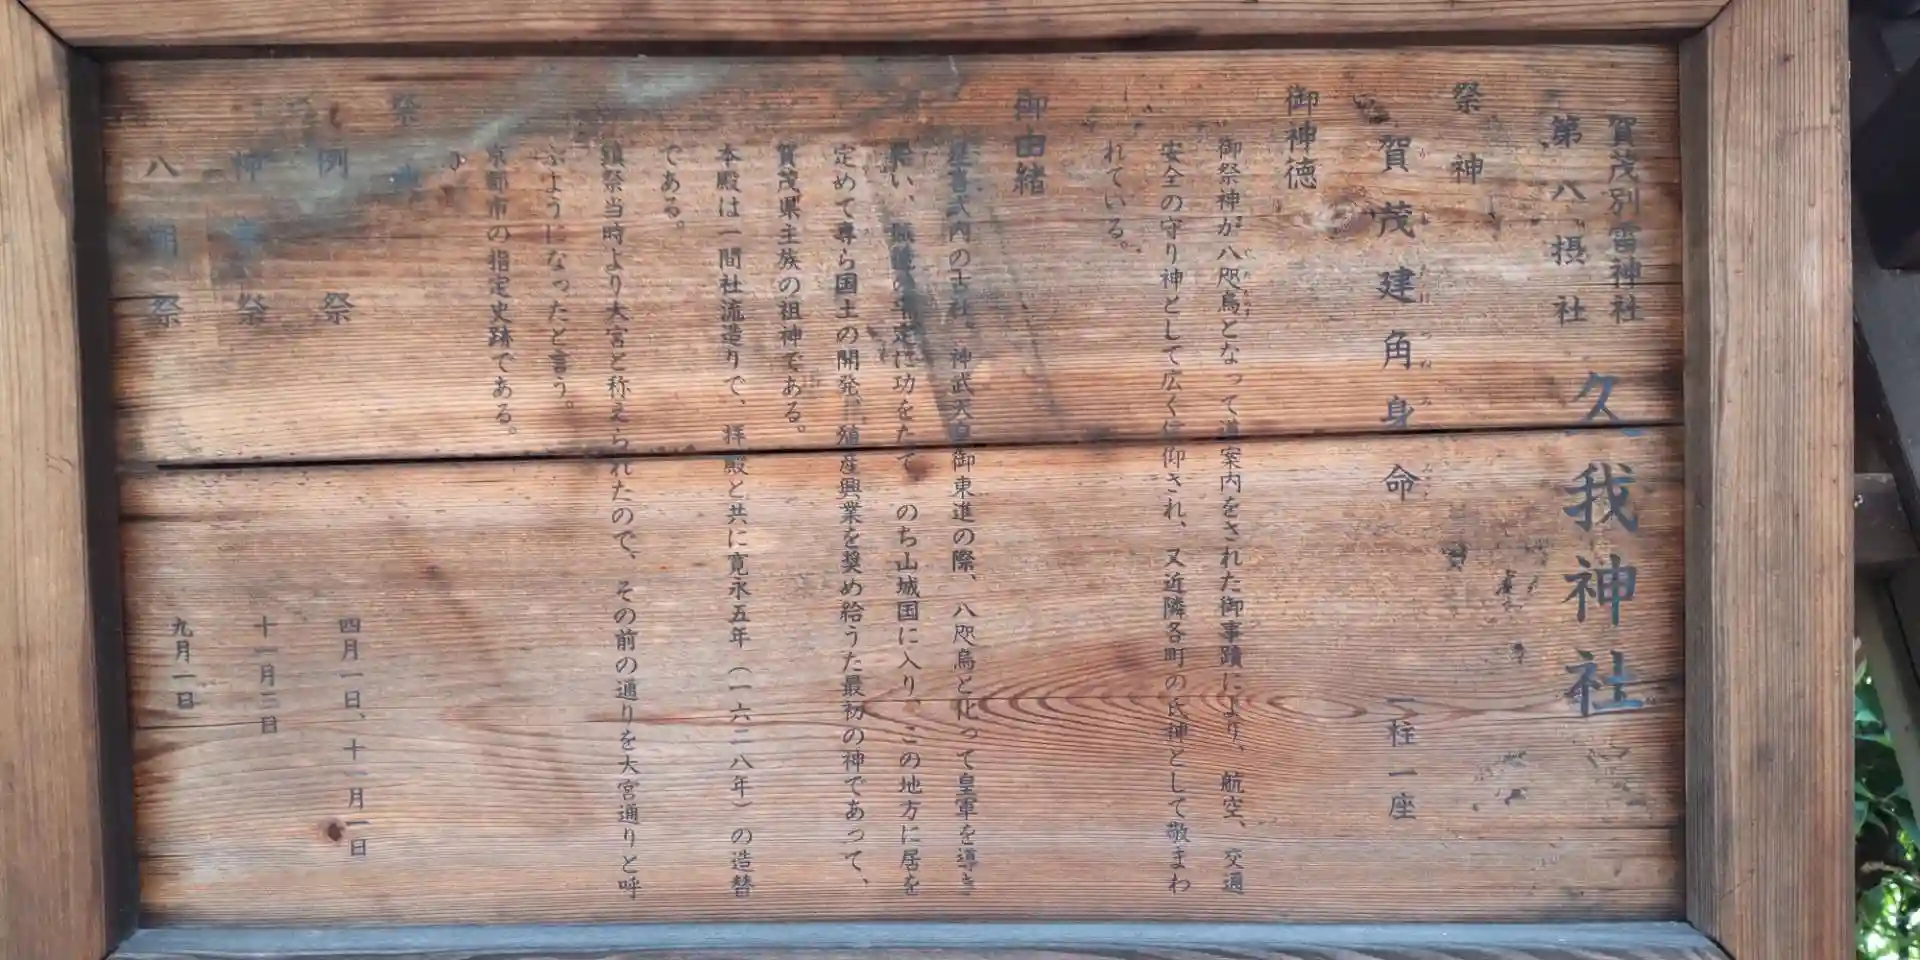 賀茂別雷神社
第八摂社 久我神社
祭神
賀茂建角身命 一柱一座
御神徳
御祭神が八咫烏となって道案内をされた御事蹟により、航空、交通
安全の守り神として広く信仰され、又近隣各町の氏神として敬まわ
れている。
御由緒
延喜式内の古社。神武天皇御東進の際、八咫烏と化って皇軍を導き
奉い、の平定に功をたて のち山城国に入り、この地方に居を
定めて専ら国土の開発、殖産興業を奨め給うた最初の神であって、
賀茂県主族の祖神である。
本殿は一間社流造りで、拝殿と共に寛永五年（一六二八年）の造替
である。
鎮祭当時より大宮と称えられたので、その前の通りを大宮通りと呼
ぶようになったと言う。
京都市の指定史跡である。
祭
例 祭 四月一日、十一月一日
祭 十一月二日
八朔祭 九月一日